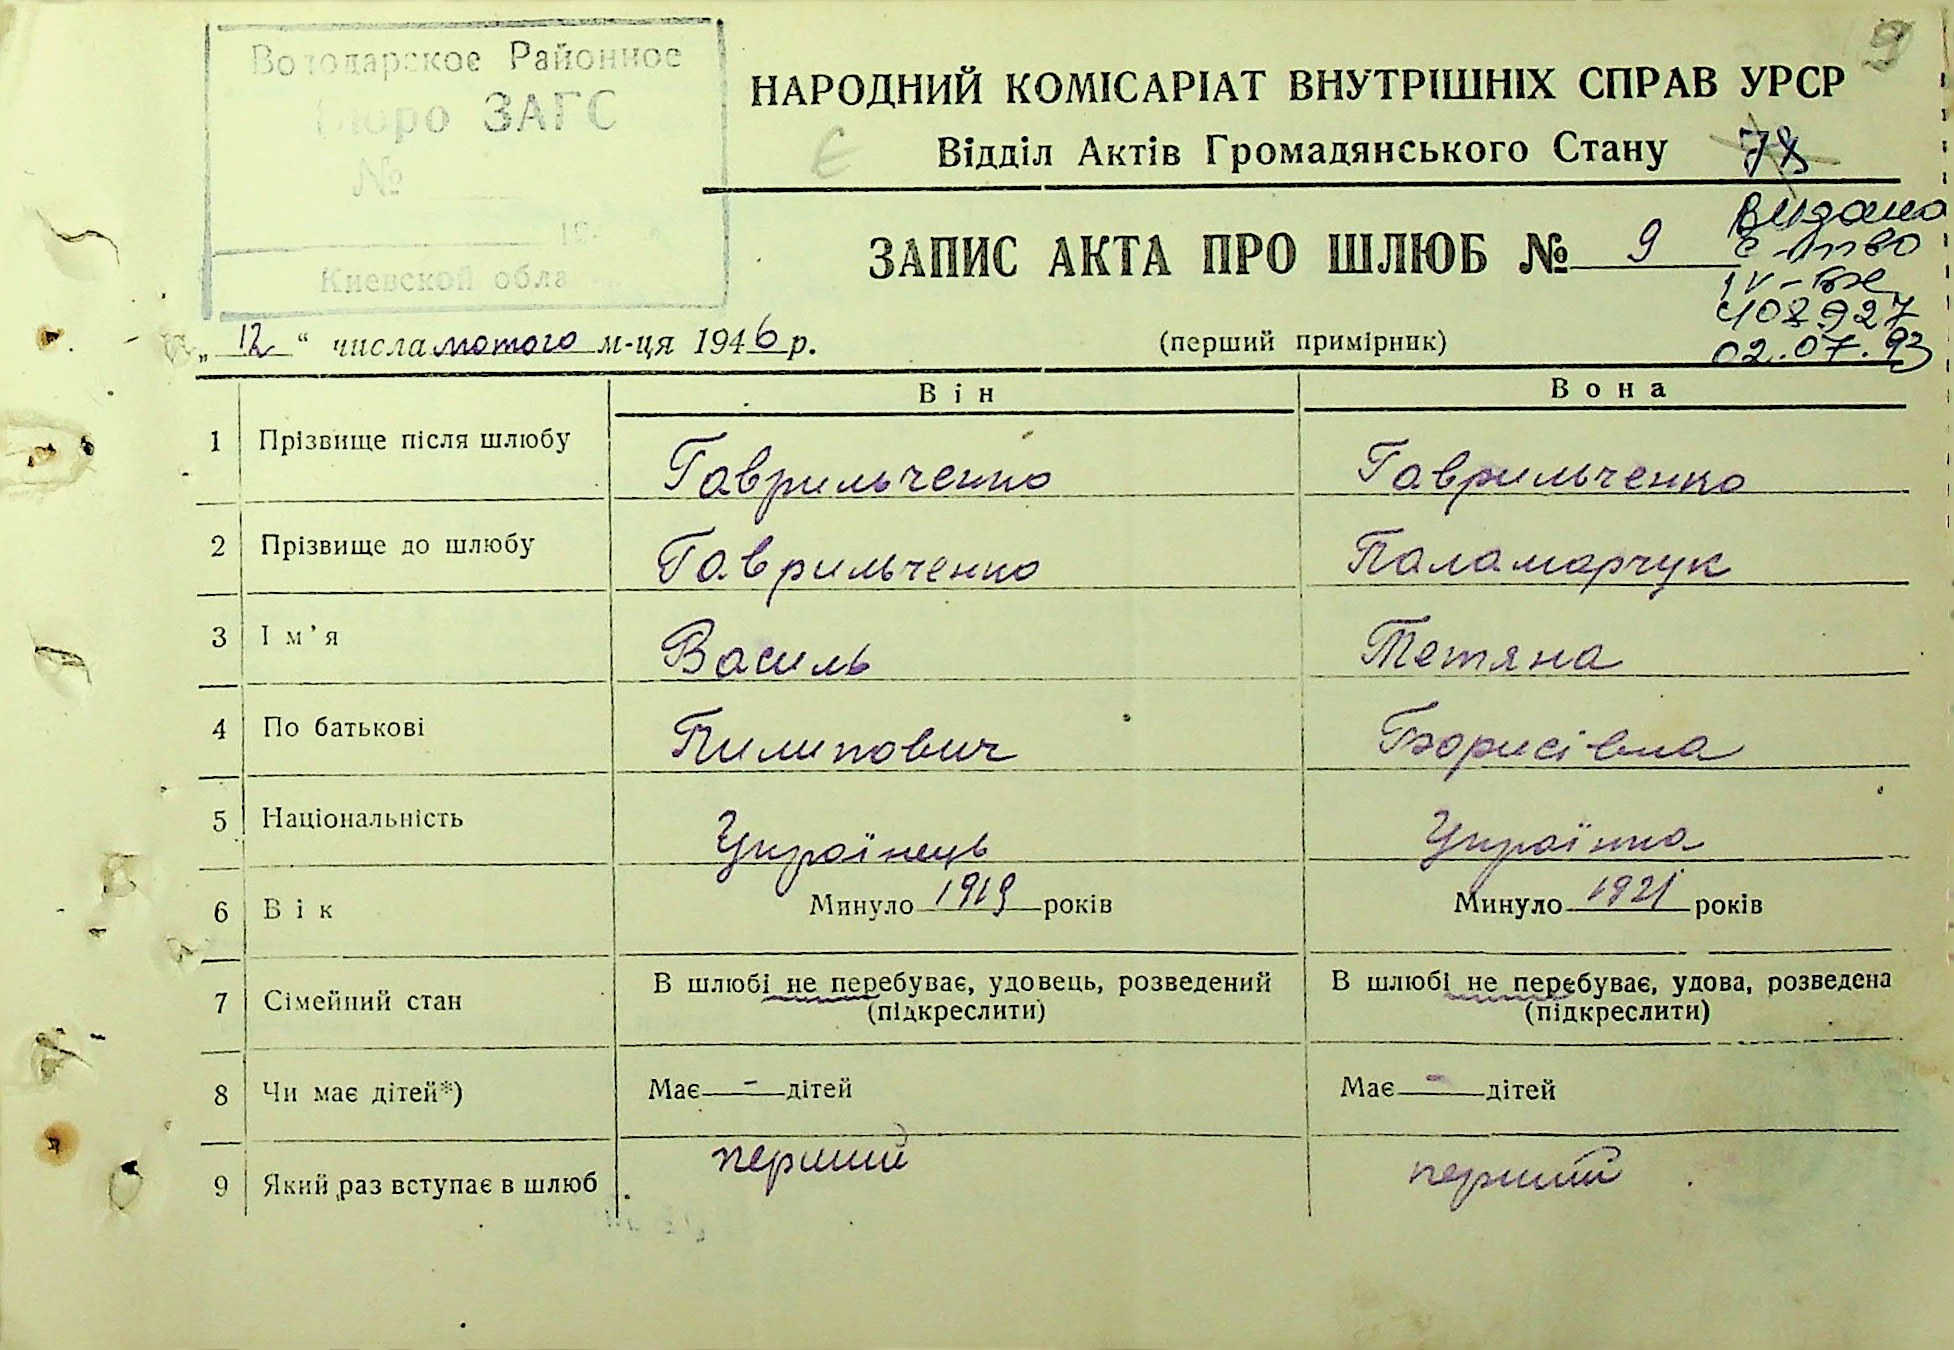 Володарское Районное
Бюро ЗАГС
№
19
Киевской обла
9
НАРОДНИЙ КОМІСАРІАТ ВНУТРІШНІХ СПРАВ УРСР
Відділ Актів Громадянського Стану 78
Є
ЗАПИС АКТА ПРО ШЛЮБ № 9
Видано
с-тво
IV-БК
408927
02.07.93
„12“ числа лютого м-ця 1946 р.
(перший примірник)
Він Вона
1 Прізвище після шлюбу Гаврильченко Гаврильченко
2 Прізвище до шлюбу Гаврильченко Паламарчук
3 Ім’я Василь Тетяна
4 По батькові Пилипович Борисівна
5 Національність Українець Українка
6 Вік Минуло 1919 років Минуло 1921 років
7 Сімейний стан В шлюбі не перебуває, удовець, розведений В шлюбі не перебуває, удова, розведена
(підкреслити) (підкреслити)
8 Чи має дітей*) Має - дітей Має - дітей
9 Який раз вступає в шлюб перший перший